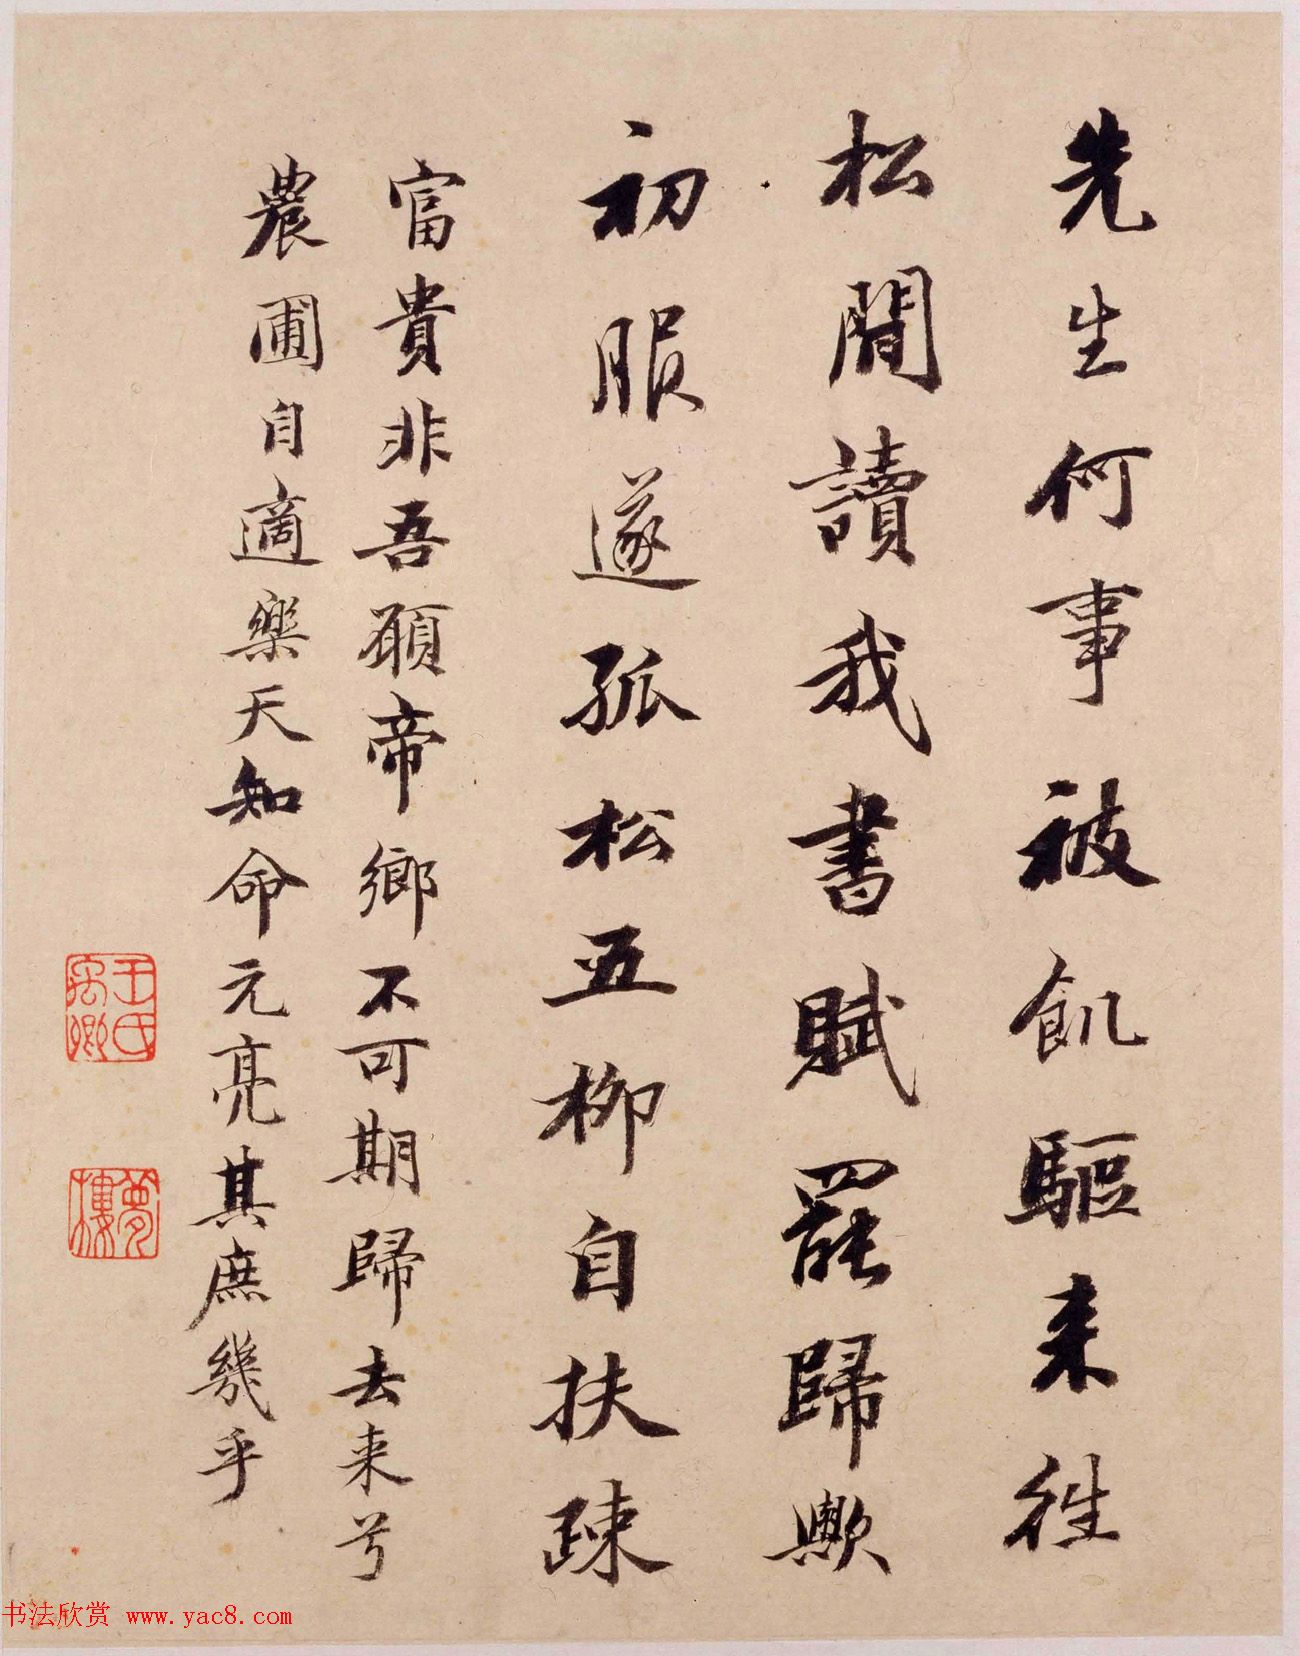 先生何事被飢驅来徃
松間讀我書賦罷歸歟
初服遂孤松五柳自扶疎
富貴非吾願帝鄉不可期歸去来兮
農圃自適樂天知命元亮其庶幾乎
王氏禹卿
夢樓
书法欣赏 www.yac8.com